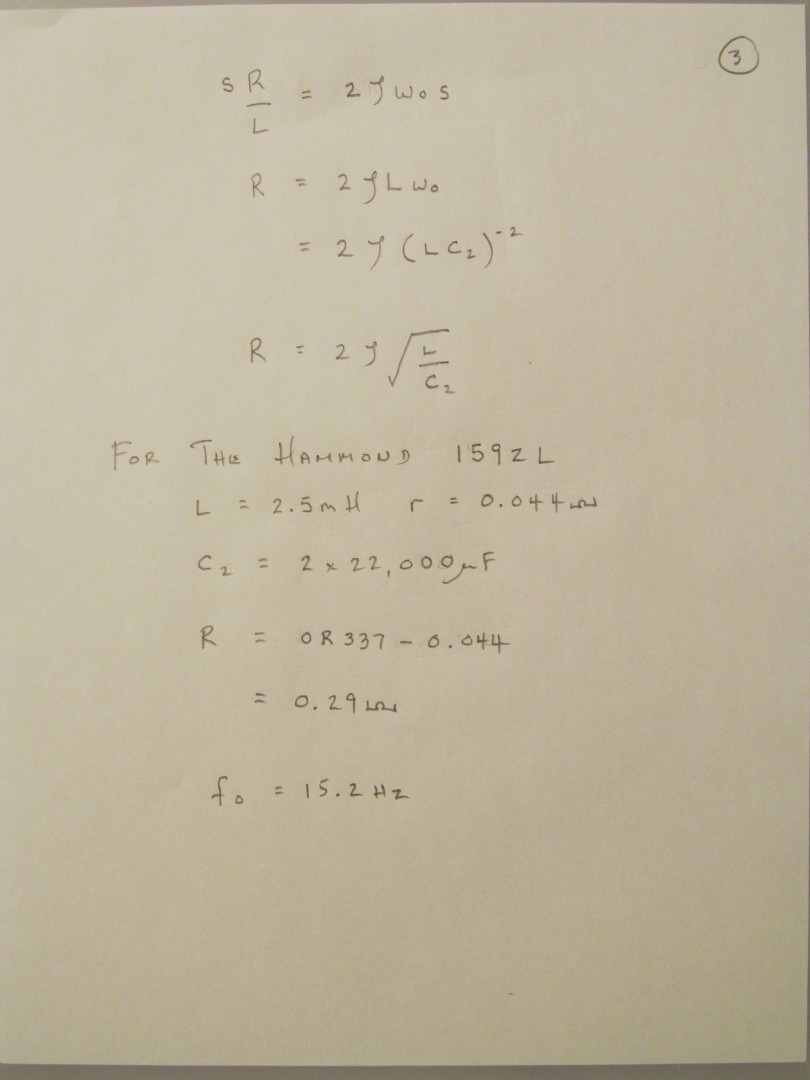 ③
s R/L = 2 ζ ω₀ s
R = 2 ζ L ω₀
= 2 ζ (L C₂)⁻²
R = 2 ζ √(L/C₂)
FOR THE HAMMOND 159ZL
L = 2.5mH r = 0.044Ω
C₂ = 2 x 22,000μF
R = 0R337 - 0.044
= 0.29Ω
f₀ = 15.2 Hz